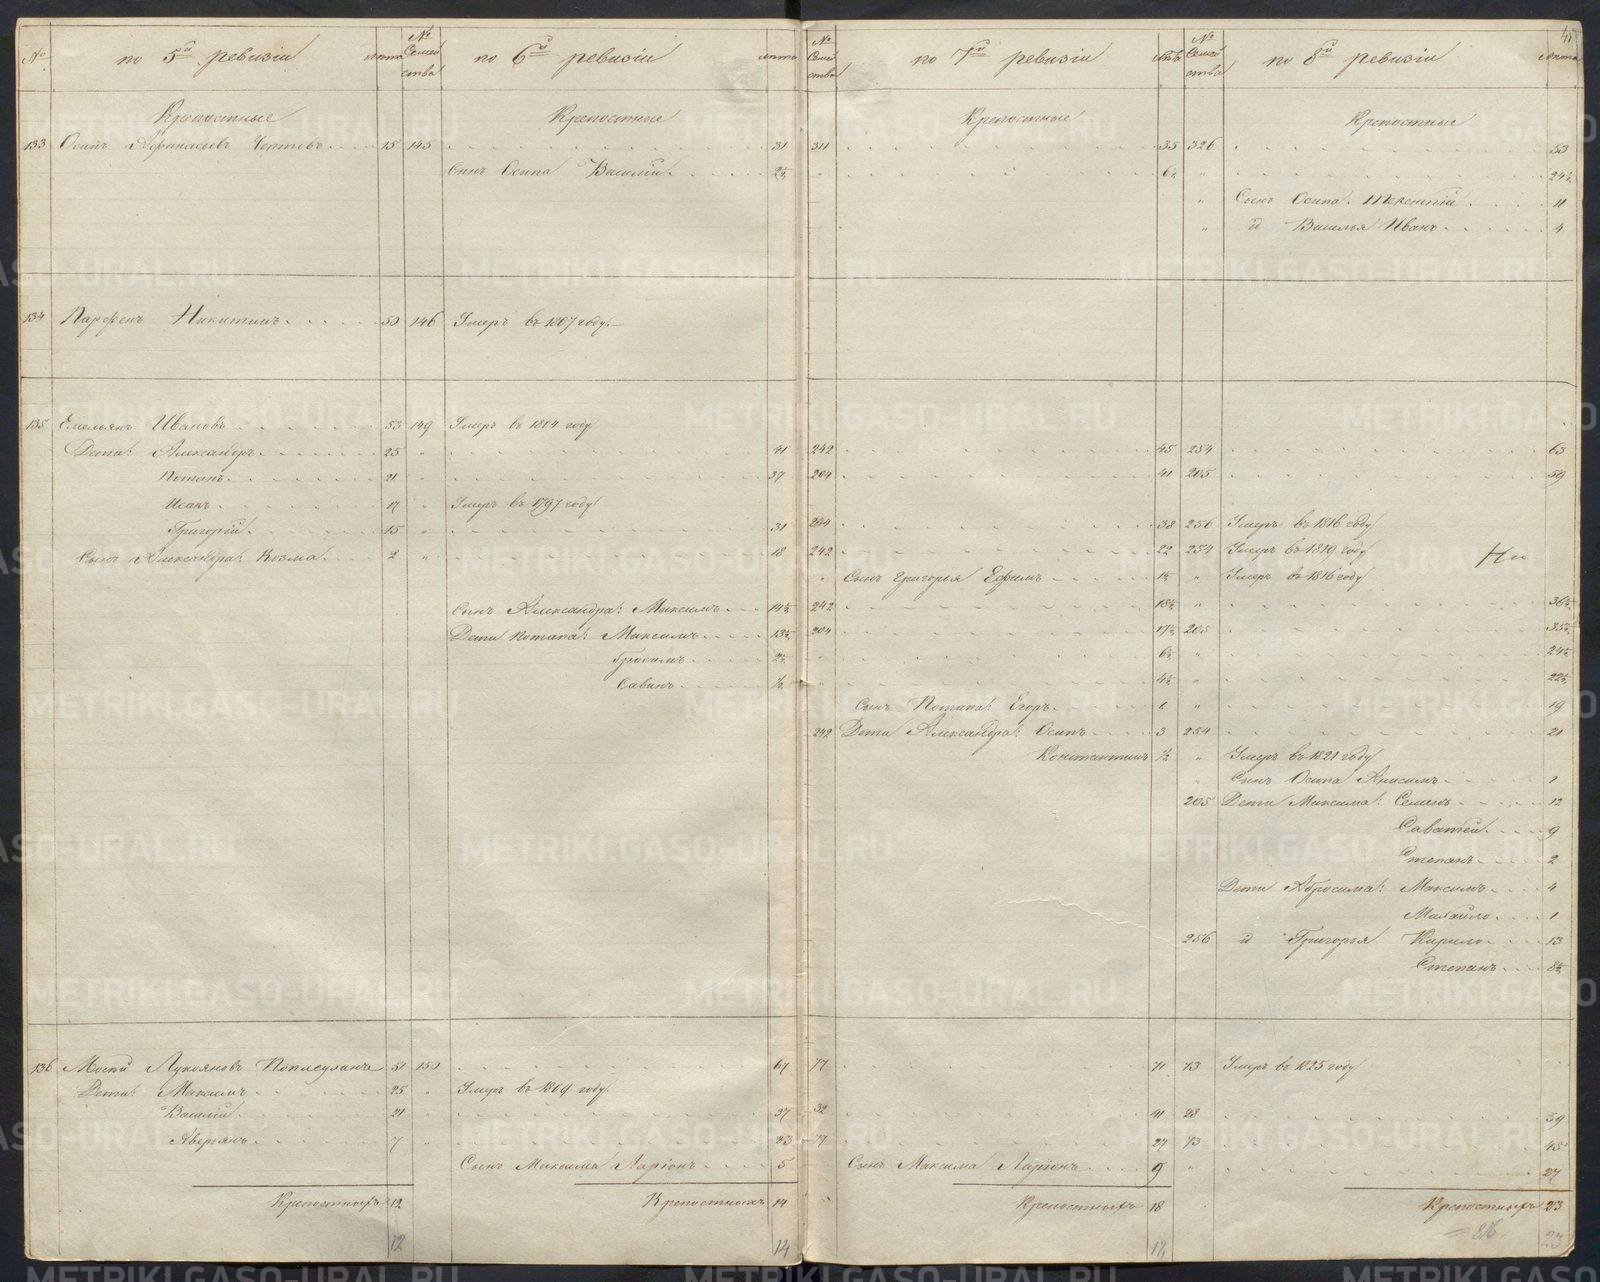 № по 5й ревизіи лѣта № Семей ства по 6й ревизіи лѣта № Семей ства по 7й ревизіи лѣтъ № Семей ства по 8й ревизіи лѣта
Крепостные Крепостные Крепостные Крепостные
133 Осипъ Афанасьевъ Чертовъ 15 145 31 311 35 326 53
Сынъ Осипа Василій 2½ " 6½ " 24½
" Сынъ Осипа Терентій 11
" и Василья Иванъ 4
134 Парфенъ Никитинъ 50 146 Умеръ въ 1807 году
135 Емельянъ Ивановъ 53 149 Умеръ въ 1804 году
Дети: Александръ 25 " 41 242 45 254 63
Потапъ 21 " 37 204 41 205 59
Исакъ 17 " Умеръ въ 1797 году
Григорій 15 " 31 244 38 256 Умеръ въ 1816 году
Сынъ Александра: Козма 2 " 18 242 22 254 Умеръ въ 1819 году
" Сынъ Григорья Ефимъ 1½ " Умеръ въ 1816 году
Сынъ Александра: Максимъ 14½ 242 18½ " 36½
Дети Потапа: Максимъ 13½ 204 17½ 205 35½
2½ " 6½ " 24½
Савинъ ½ " 4½ " 22½
Сынъ Потапа: Егоръ 1 " 19
242 Дети Александра: Осипъ 3 254 21
Константинъ ½ " Умеръ въ 1821 году
" Сынъ Осипа Анисимъ 1
205 Дети Максима: Семенъ 12
Саватей 9
Степанъ 2
Дети Абросима: Максимъ 4
Михайло 1
256 и Григорья Кирило 13
Степанъ 8½
136 Мосей Лукояновъ 51 150 67 77 71 73 Умеръ въ 1825 году
Дети: Максимъ 25 " Умеръ въ 1809 году
Василій 21 " 37 32 41 28 59
Аверьянъ 7 " 23 77 27 73 45
Сынъ Максима Ларіонъ 5 Сынъ Максима Ларіонъ 9 " 27
Крепостныхъ 12 Крепостныхъ 14 Крепостныхъ 18 Крепостныхъ 23
12 14 18 23
METRIKI.GASO-URAL.RU